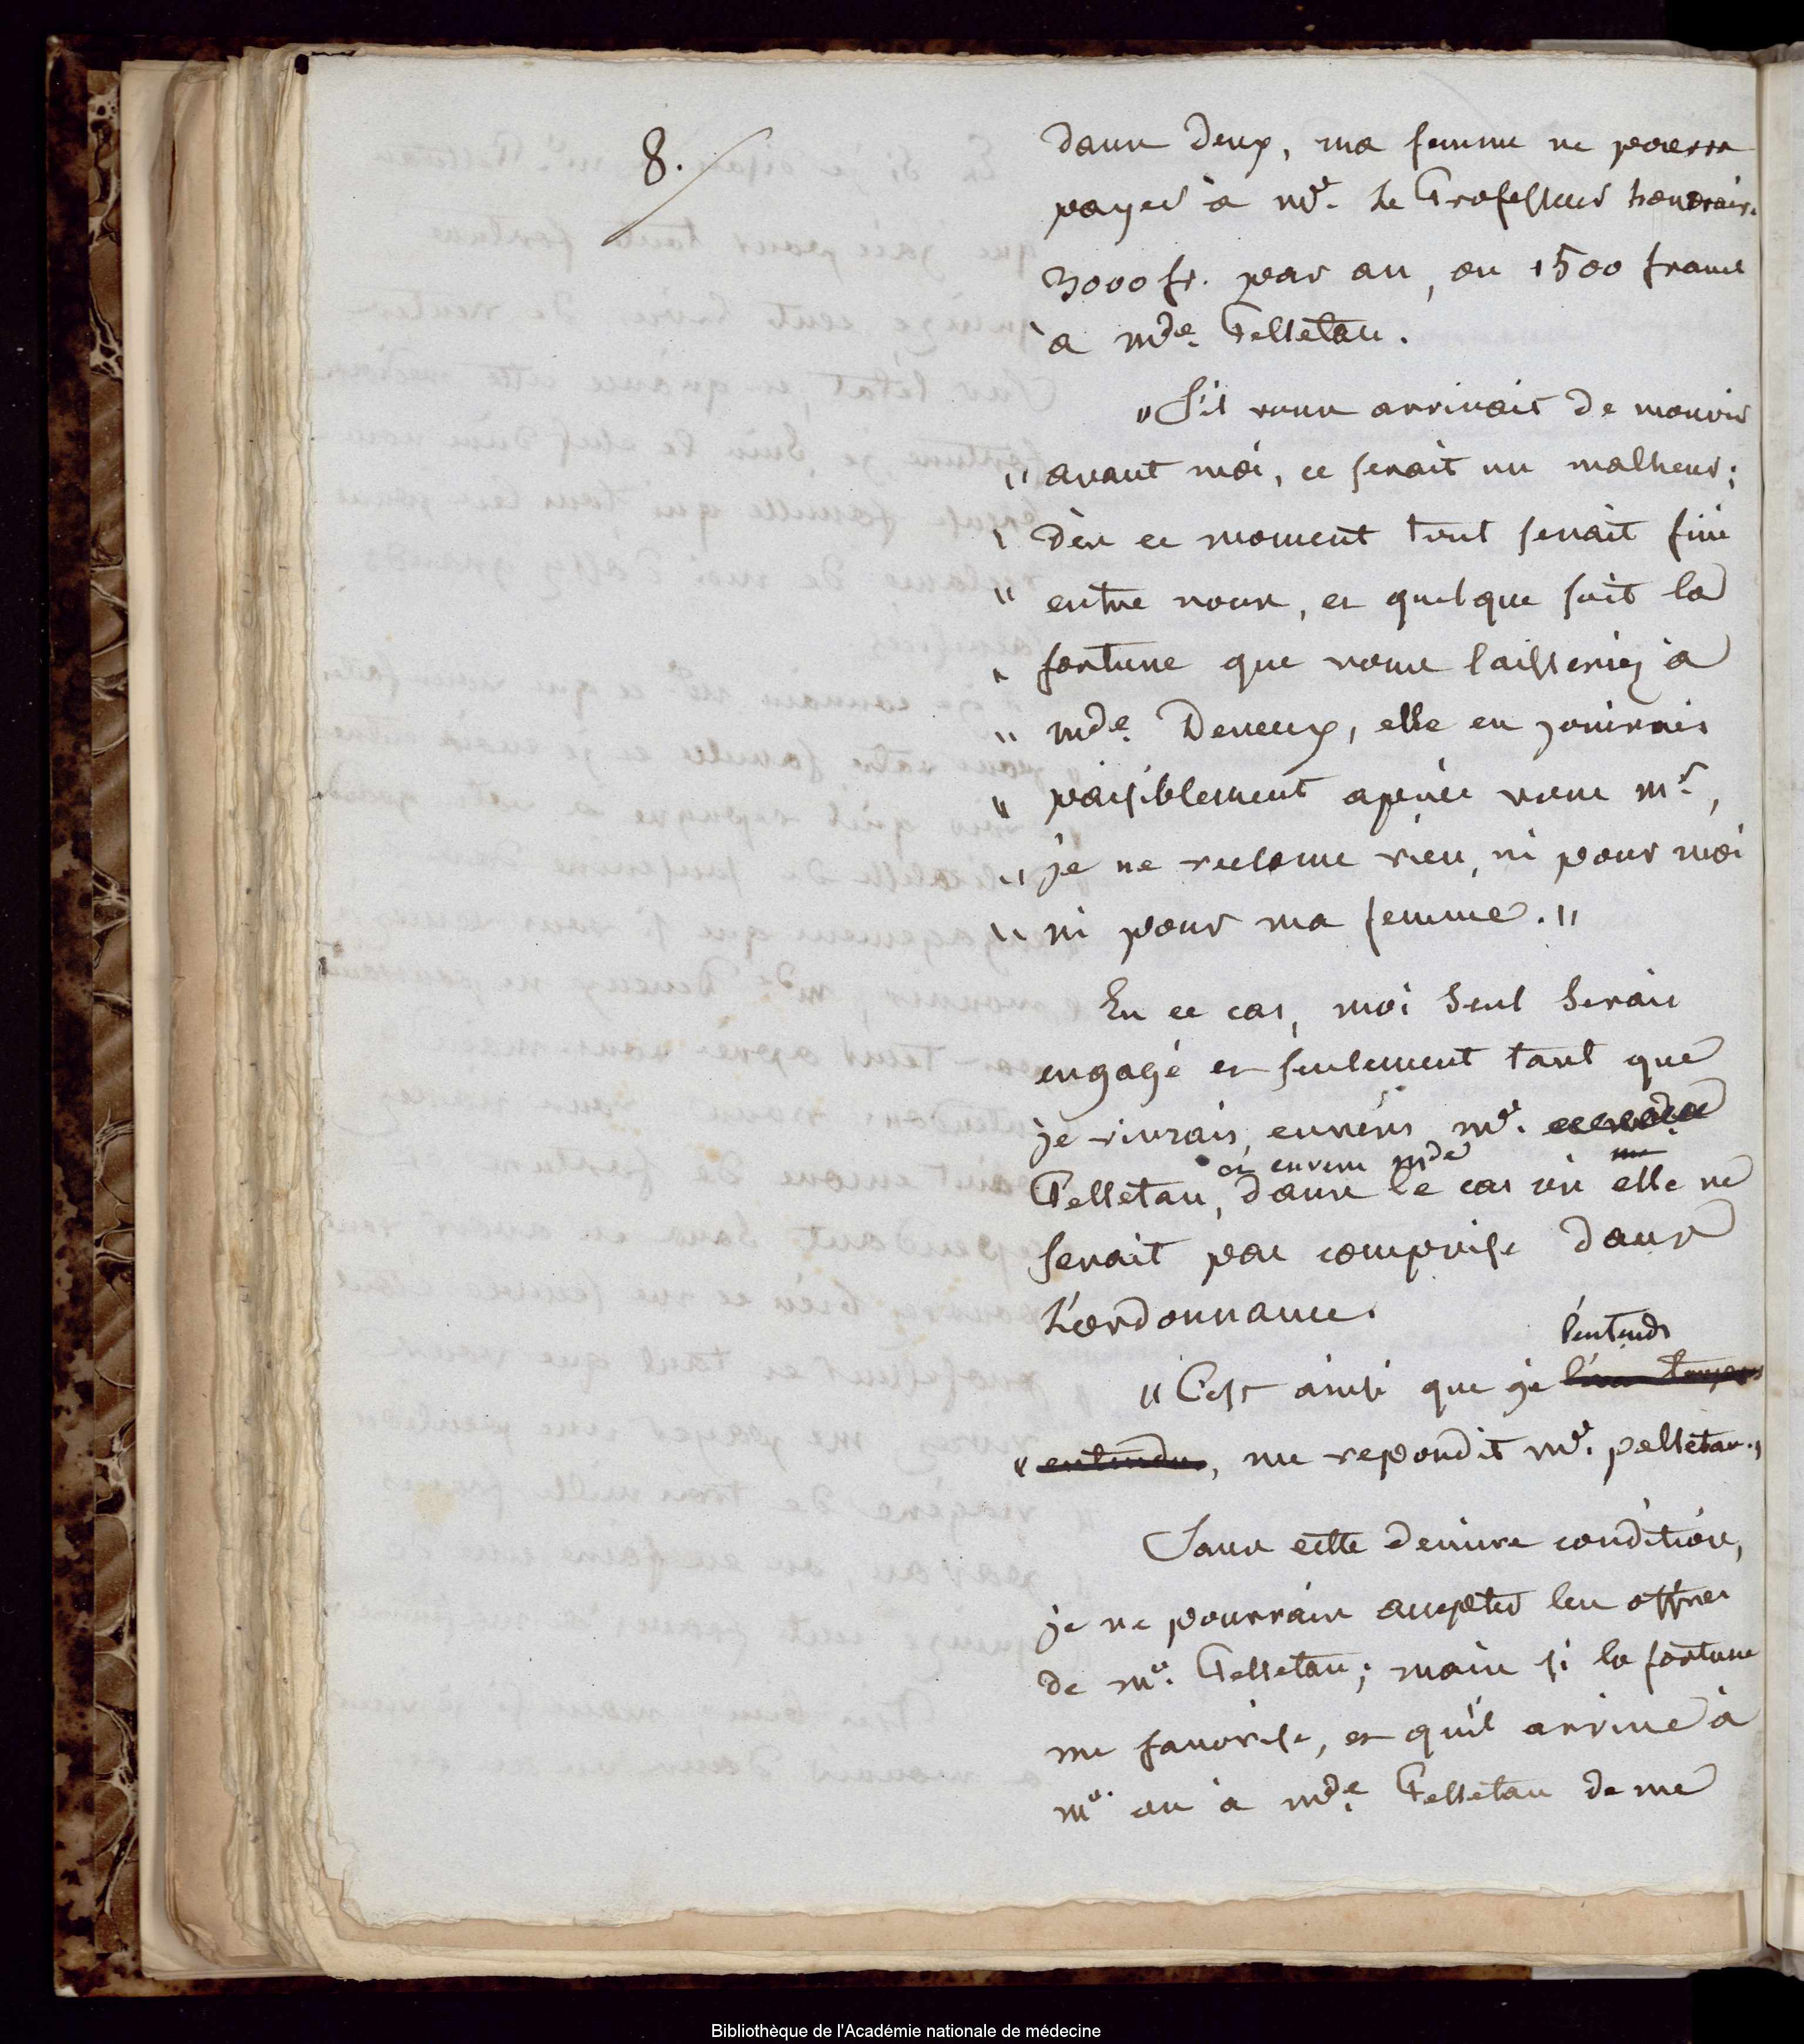 8.
dans deux, ma femme ne pourra
payer à Mr. le Professeur honorair.
3000 fr. par an, ou 1500 francs
à Mde. Pelletan.
"S'il vous arrivait de mourir
" avant moi, ce serait un malheur;
" dès ce moment tout serait fini
" entre nous, et quelque soit la
" fortune que vous laisseriez à
" Mde. Deneux, elle en jouirait
" paisiblement après vous Mr.,
" je ne reclame rien, ni pour moi
" ni pour ma femme."
En ce cas, moi seul serais
engagé et seulement tant que
je vivrais, envers Mr.
et envers Mde
Pelletan, dans le cas où elle ne
serait pas comprise dans
l'ordonnance.
l'entends
"C'est ainsi que je
" entendu, me repondit Mr. pelletan."
Sans cette denière condition,
je ne pourrais accepter les offres
de Mr. Pelletan; mais si la fortune
me favorise, et qu'il arrive à
Mr. ou à Mde. Pelletan de me
Bibliothèque de l'Académie nationale de médecine